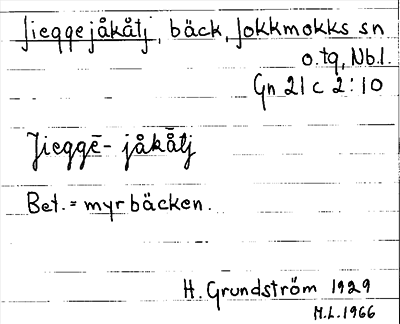 Jieggejåkåtj, bäck, Jokkmokks sn
o. tg, Nb.l.
Gn 21 c 2:10
Jieggē- jåkåtj
Bet. = myrbäcken.
H. Grundström 1929
M.L. 1966